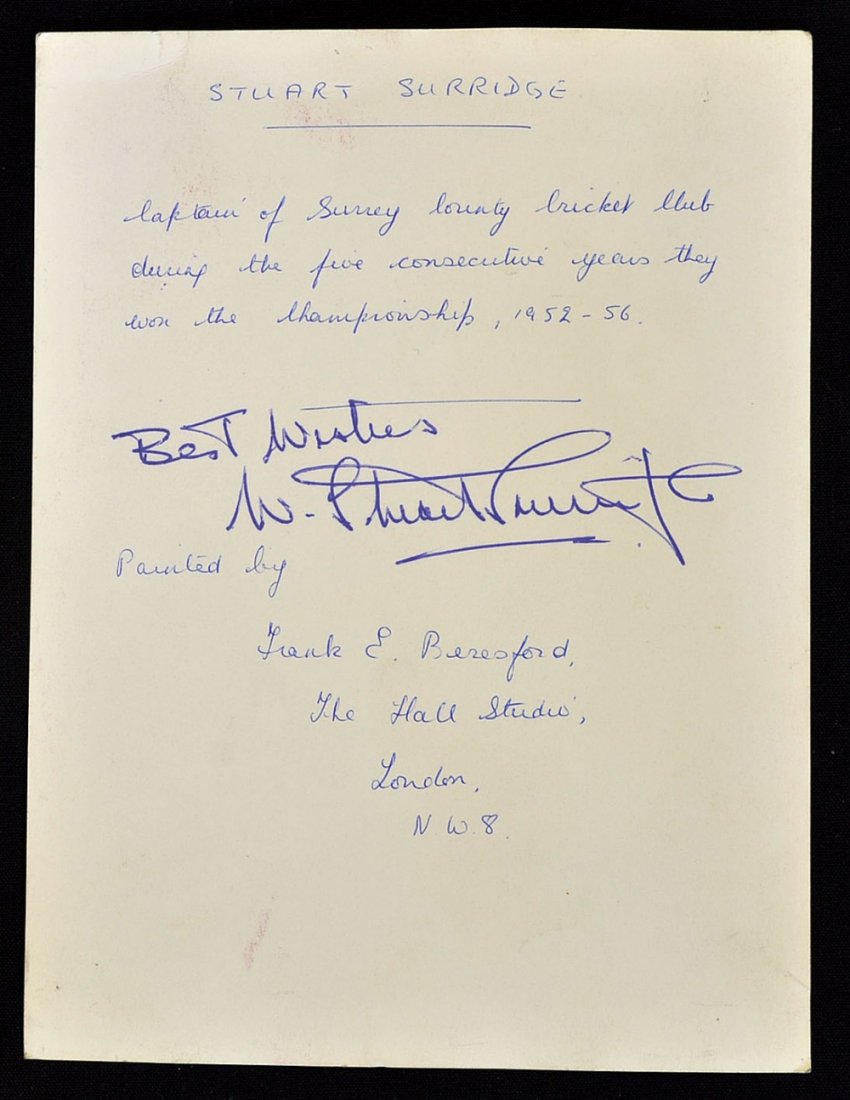 STUART SURRIDGE
Captain of Surrey County Cricket Club
during the five consecutive years they
won the Championship, 1952-56.
Best Wishes
W. Stuart Surridge
Painted by
Frank E. Beresford,
The Hall Studio,
London,
N.W.8.